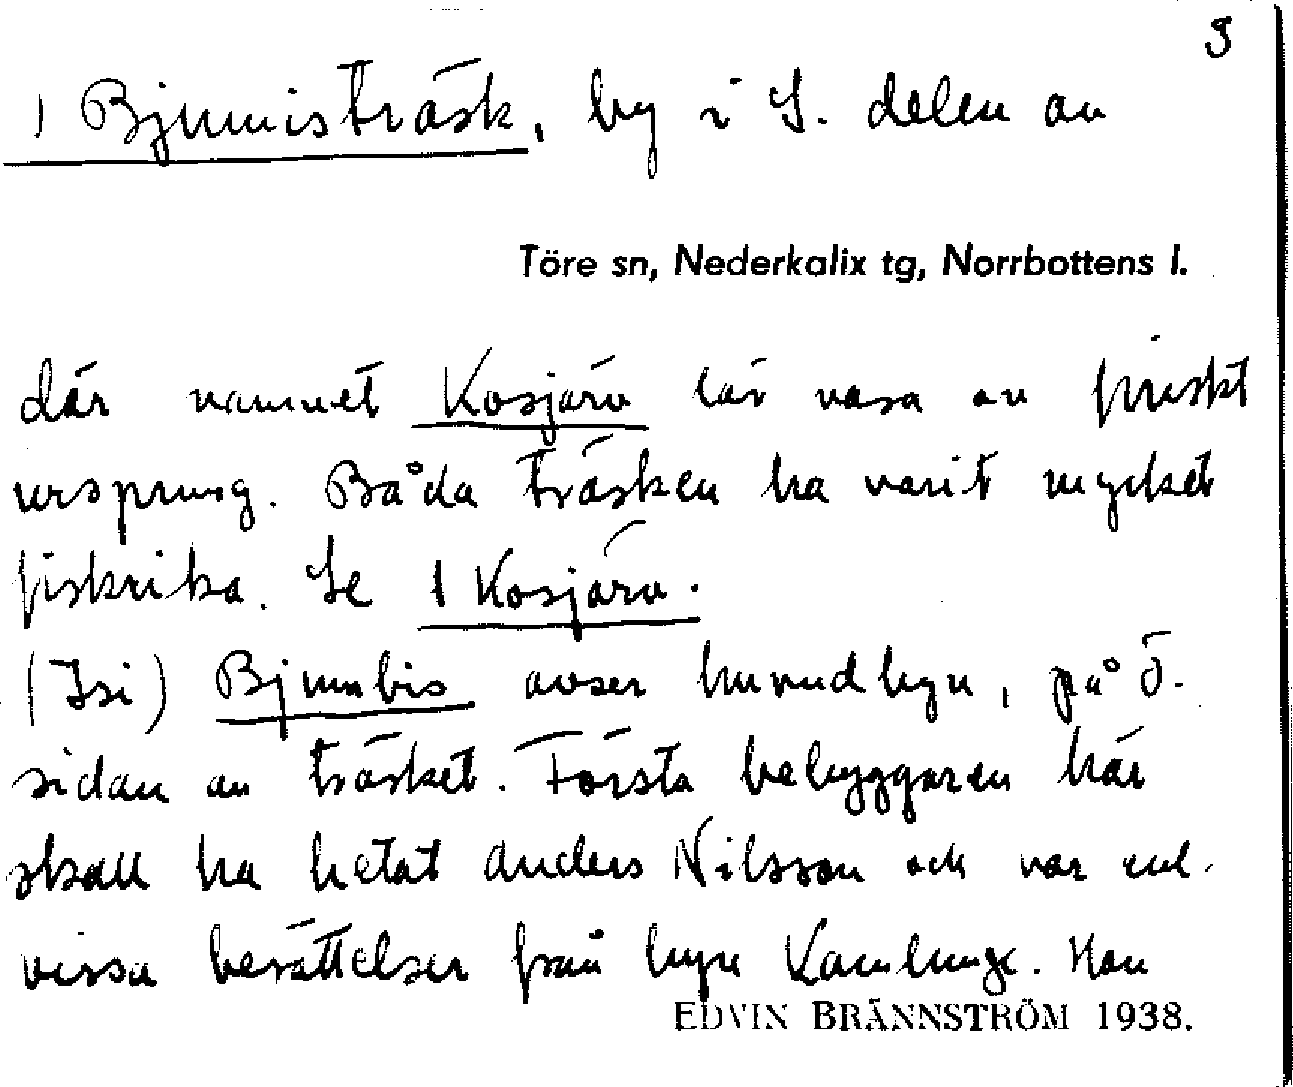 3
1 Bjumisträsk, by i S. delen av
Töre sn, Nederkalix tg, Norrbottens l.
där namnet Kosjärv lär vara av finskt
ursprung. Båda träsken ha varit mycket
fiskrika. Se 1 Kosjärv.
(Isi) Bjumbis avser huvudbyn, på ö.
sidan av träsket. Första bebyggaren här
skall ha hetat Anders Nilsson och var enl.
vissa berättelser från byn Kamlunge. Han
EDVIN BRÄNNSTRÖM 1938.